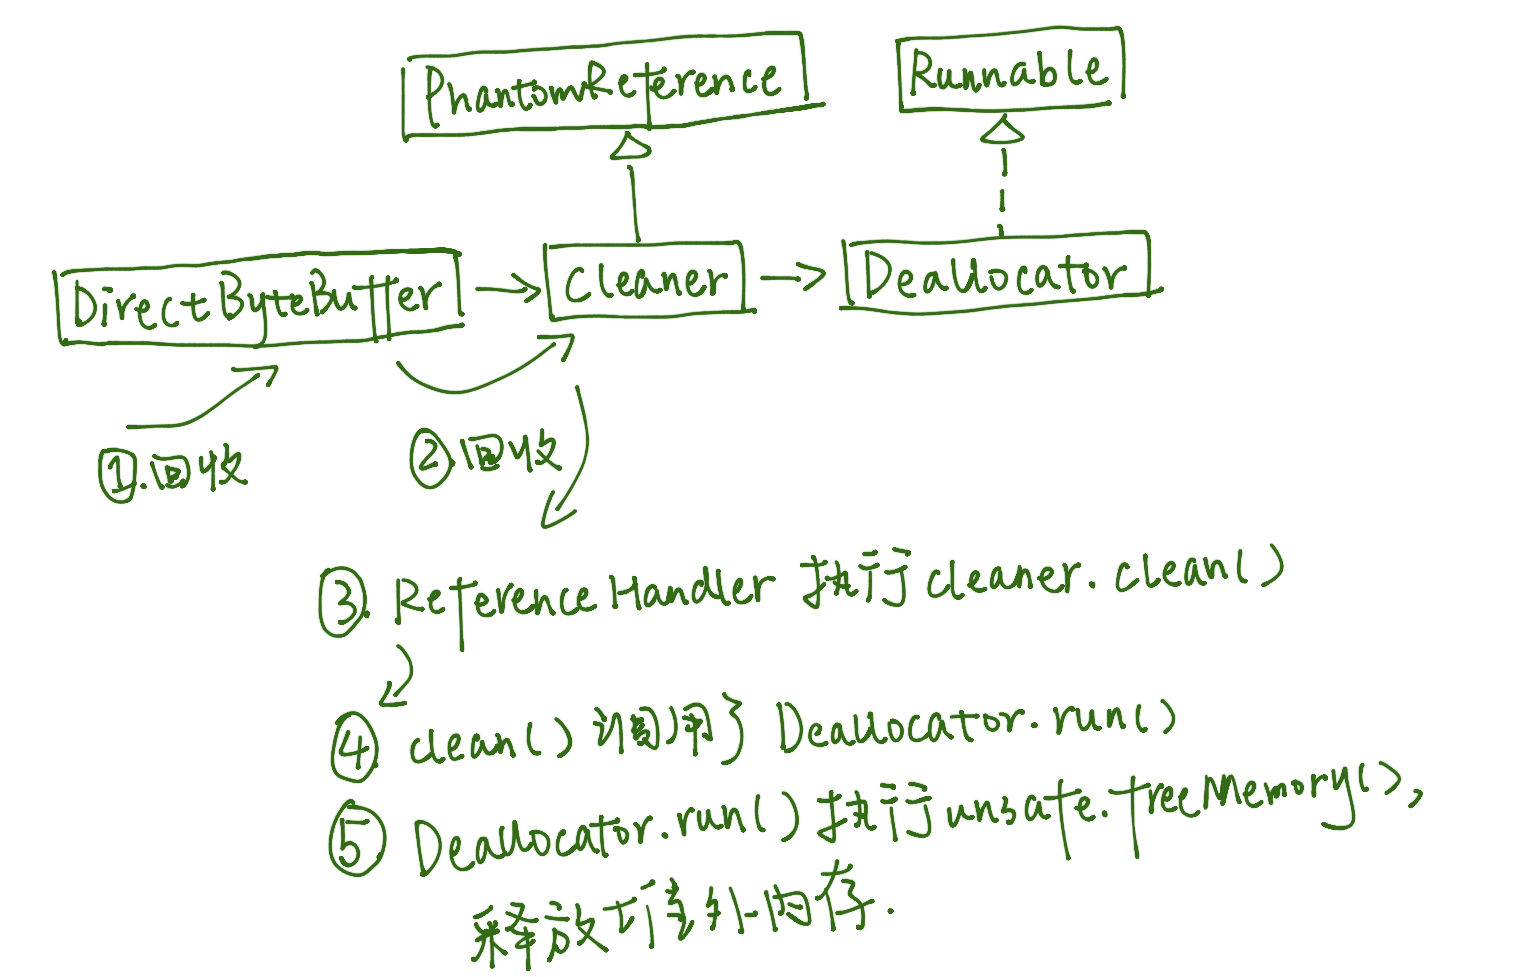 PhantomReference
Runnable
DirectByteBuffer
Cleaner
Deallocator
①.回收
②.回收
③. ReferenceHandler 执行cleaner.clean()
④ clean() 调用了 Deallocator.run()
⑤ Deallocator.run() 执行unsafe.freeMemory(),
释放堆外内存.